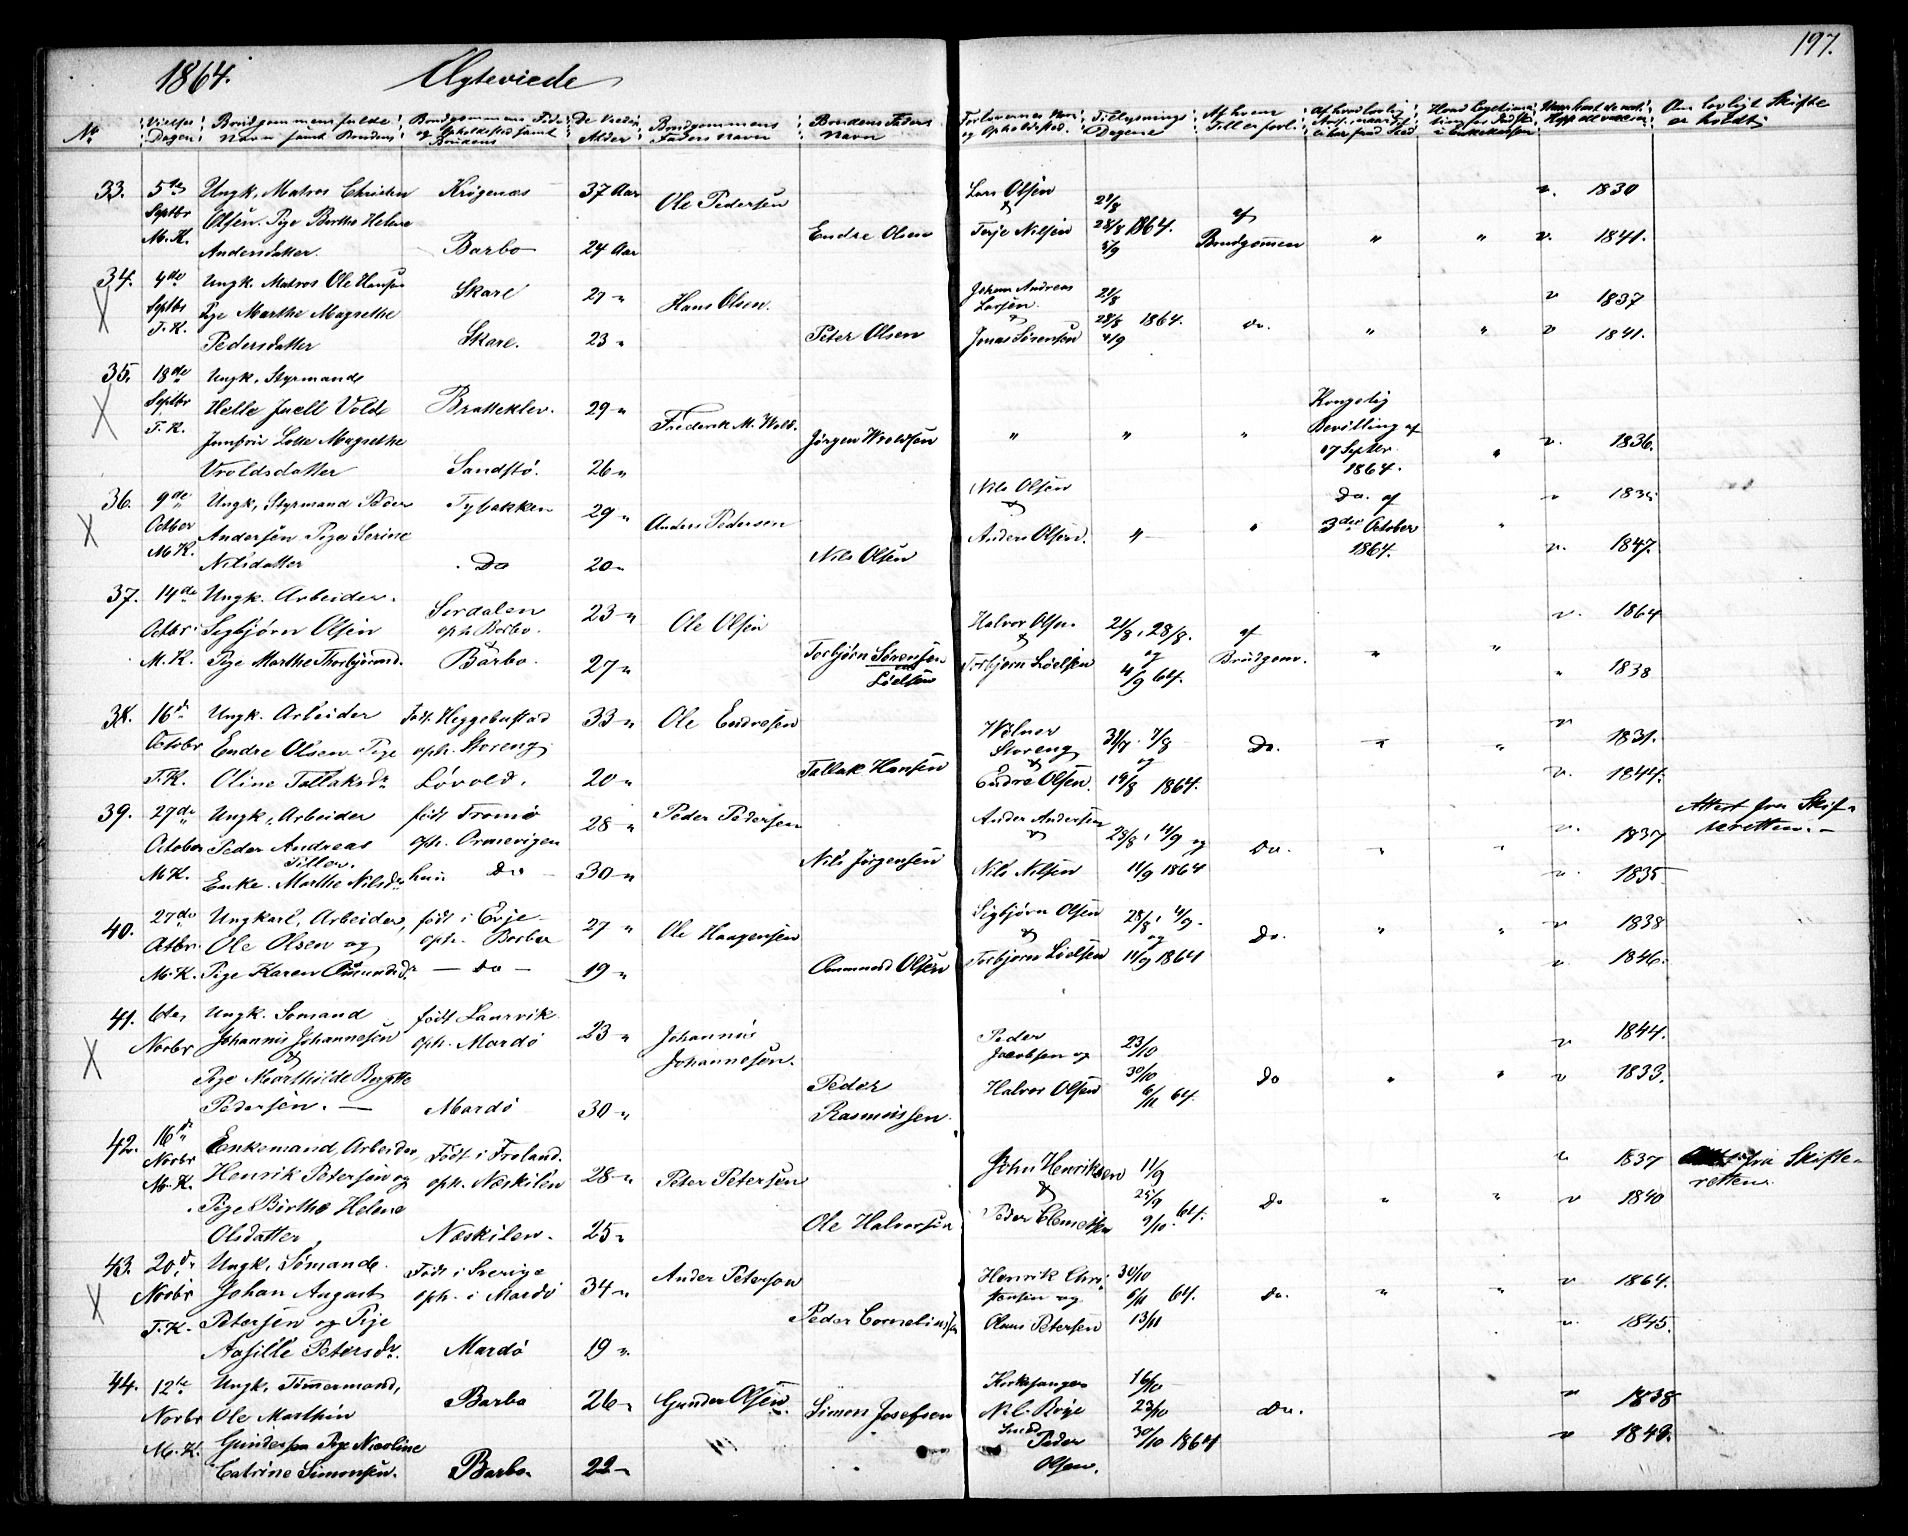 197.
1864. Ægteviede
No Vielses Dagen Brudgommens fulde Navn samt Brudens Brudgommens Føde og Opholdssted samt Brudens De Viedes Alder Brudgommens Faders Navn Brudens Faders Navn Forlovernes Navn og Opholdssted. Tillysnings Dagene Af hvem Tillysn. forl. Om lovligt Skifte er holdt
33. 5te Septbr M.K. Ungk. Matros Christen Olsen. Pige Berthe Helene Andersdatter.
Krøgenæs 37 Aar Ole Pedersen
Barbo 24 Aar Endre Olsen
Lars Olsen & Terje Nilsen 21/8 28/8 1864. 5/9 af Brudgomen " " v. 1830 v. 1841.
34. 4de Septbr T.K. Ungk. Matros Ole Hansen Pige Marthe Magrethe Pedersdatter
Skare 27 " Hans Olsen.
Skare. 23 " Peter Olsen
Johan Andreas Larsen & Jonas Sørensen 21/8 28/8 1864. 4/9 Do. " " v 1837 v 1841.
35. 18de Septbr T.K. Ungk. Styrmand Helle Juell Vold Jomfru Lotte Magrethe Vroldsdatter
Bratteklev. 29 " Frederik M. Wold.
Sandstø. 26 " Jørgen Wroldsen
" " " Kongelig Bevilling af 17 Septbr 1864. " v. 1836.
36. 9de Octber M.K. Ungk. Styrmand Peder Andersen Pige Serine Nilsdatter
Tybakken 29 " Anders Pedersen
Do 20 " Nils Olsen
Nils Olsen & Anders Olsen. " " Do. af 3die October 1864. " v 1835 v. 1847.
37. 14de Octbr. M.K. Ungk. Arbeider. Segbjørn Olsen Pige Marthe Thorbjørnsd.
Serdalen oph. Barbo. 23 " Ole Olsen
Barbo. 27 " Torbjørn Sørensen Løelsen
Halvor Olsen & Torbjørn Løelsen 21/8, 28/8. og 4/9 64. af Brudgom. " " v. 1864 " 1838
38. 16d October T.K. Ungk. Arbeider Endre Olsen Pige Oline Tallaksdr
Født. Heggebustad oph. Storeng 33 " Ole Endresen
Løvold. 20 " Tallak Hansen
Storeng & Endre Olsen. 31/7. 7/8 og 14/8 1864. Do. " " v 1831. v. 1844.
39. 27de October M.K. Ungk. Arbeider Peder Andreas Enke. Marthe Nilsdr
født Tromø oph. Ormevigen 28 " Peder Pedersen
hun Do 30 " Nils Jørgensen
Ander Andersen & Nils Nilsen 28/8, 4/9 og 11/9 1864 Do. " " v. 1837 v. 1835 Attest fra Skifteretten.
40. 27de Octbr. M.K. Ungkarl, Arbeider, Ole Olsen og Pige Karen Osmundsdr
født i Evje oph. Barbo 27 " Ole Haagensen
Do 19 " Osmund Olsen
Sigbjørn Olsen & Torbjørn Løelsen 28/8, 4/9. og 11/9 1864 Do. " " v 1838 v. 1846.
41. 6te Novbr Ungk. Sømand Johannis Johannesen & Pige Marthilde Birgitte Pedersen.
født Laurvik oph. Mardø 23 " Johannes Johannesen.
Mardø 30 " Peder Rasmussen.
Peder Jacobsen og Halvor Olsen 23/10 30/10 6/11 64. Do " " v 1844. v 1833.
42. 16de Novbr M.K. Enkemand, Arbeider, Henrik Petersen og Pige Birthe Helene Olsdatter
Født i Froland. oph. Næskilen 28 " Peter Petersen
Næskilen. 25 " Ole Halvorsen
John Henriksen & Peder Clemetsen 11/9 25/9 9/10 64. Do " " v 1837 v 1840 fra Skifteretten.
43. 20d. Novbr T.K. Ungk. Sømand. Johan August Petersen og Pige Aasille Petersdr.
Født i Sverige oph. i Mardø 34 " Ander Peterson
Mardø 19 " Peder Corneliussen
Henrik Christensen og Olaus Petersen 30/10 6/11 64. 13/11 Do. " " v 1864. v. 1845.
44. 12te Novbr M.K. Ungk. Tømmermand, Ole Marthin Gundersen Pige Nicoline Catrine Simonsen.
Barbo 26 " Gunder Olsen.
Barbo 22 " Simon Josefsen
Kirkesanger N.L. Bøye Peder Olsen. 16/10 23/10 30/10 1864 Do. v 1838 v 1842.